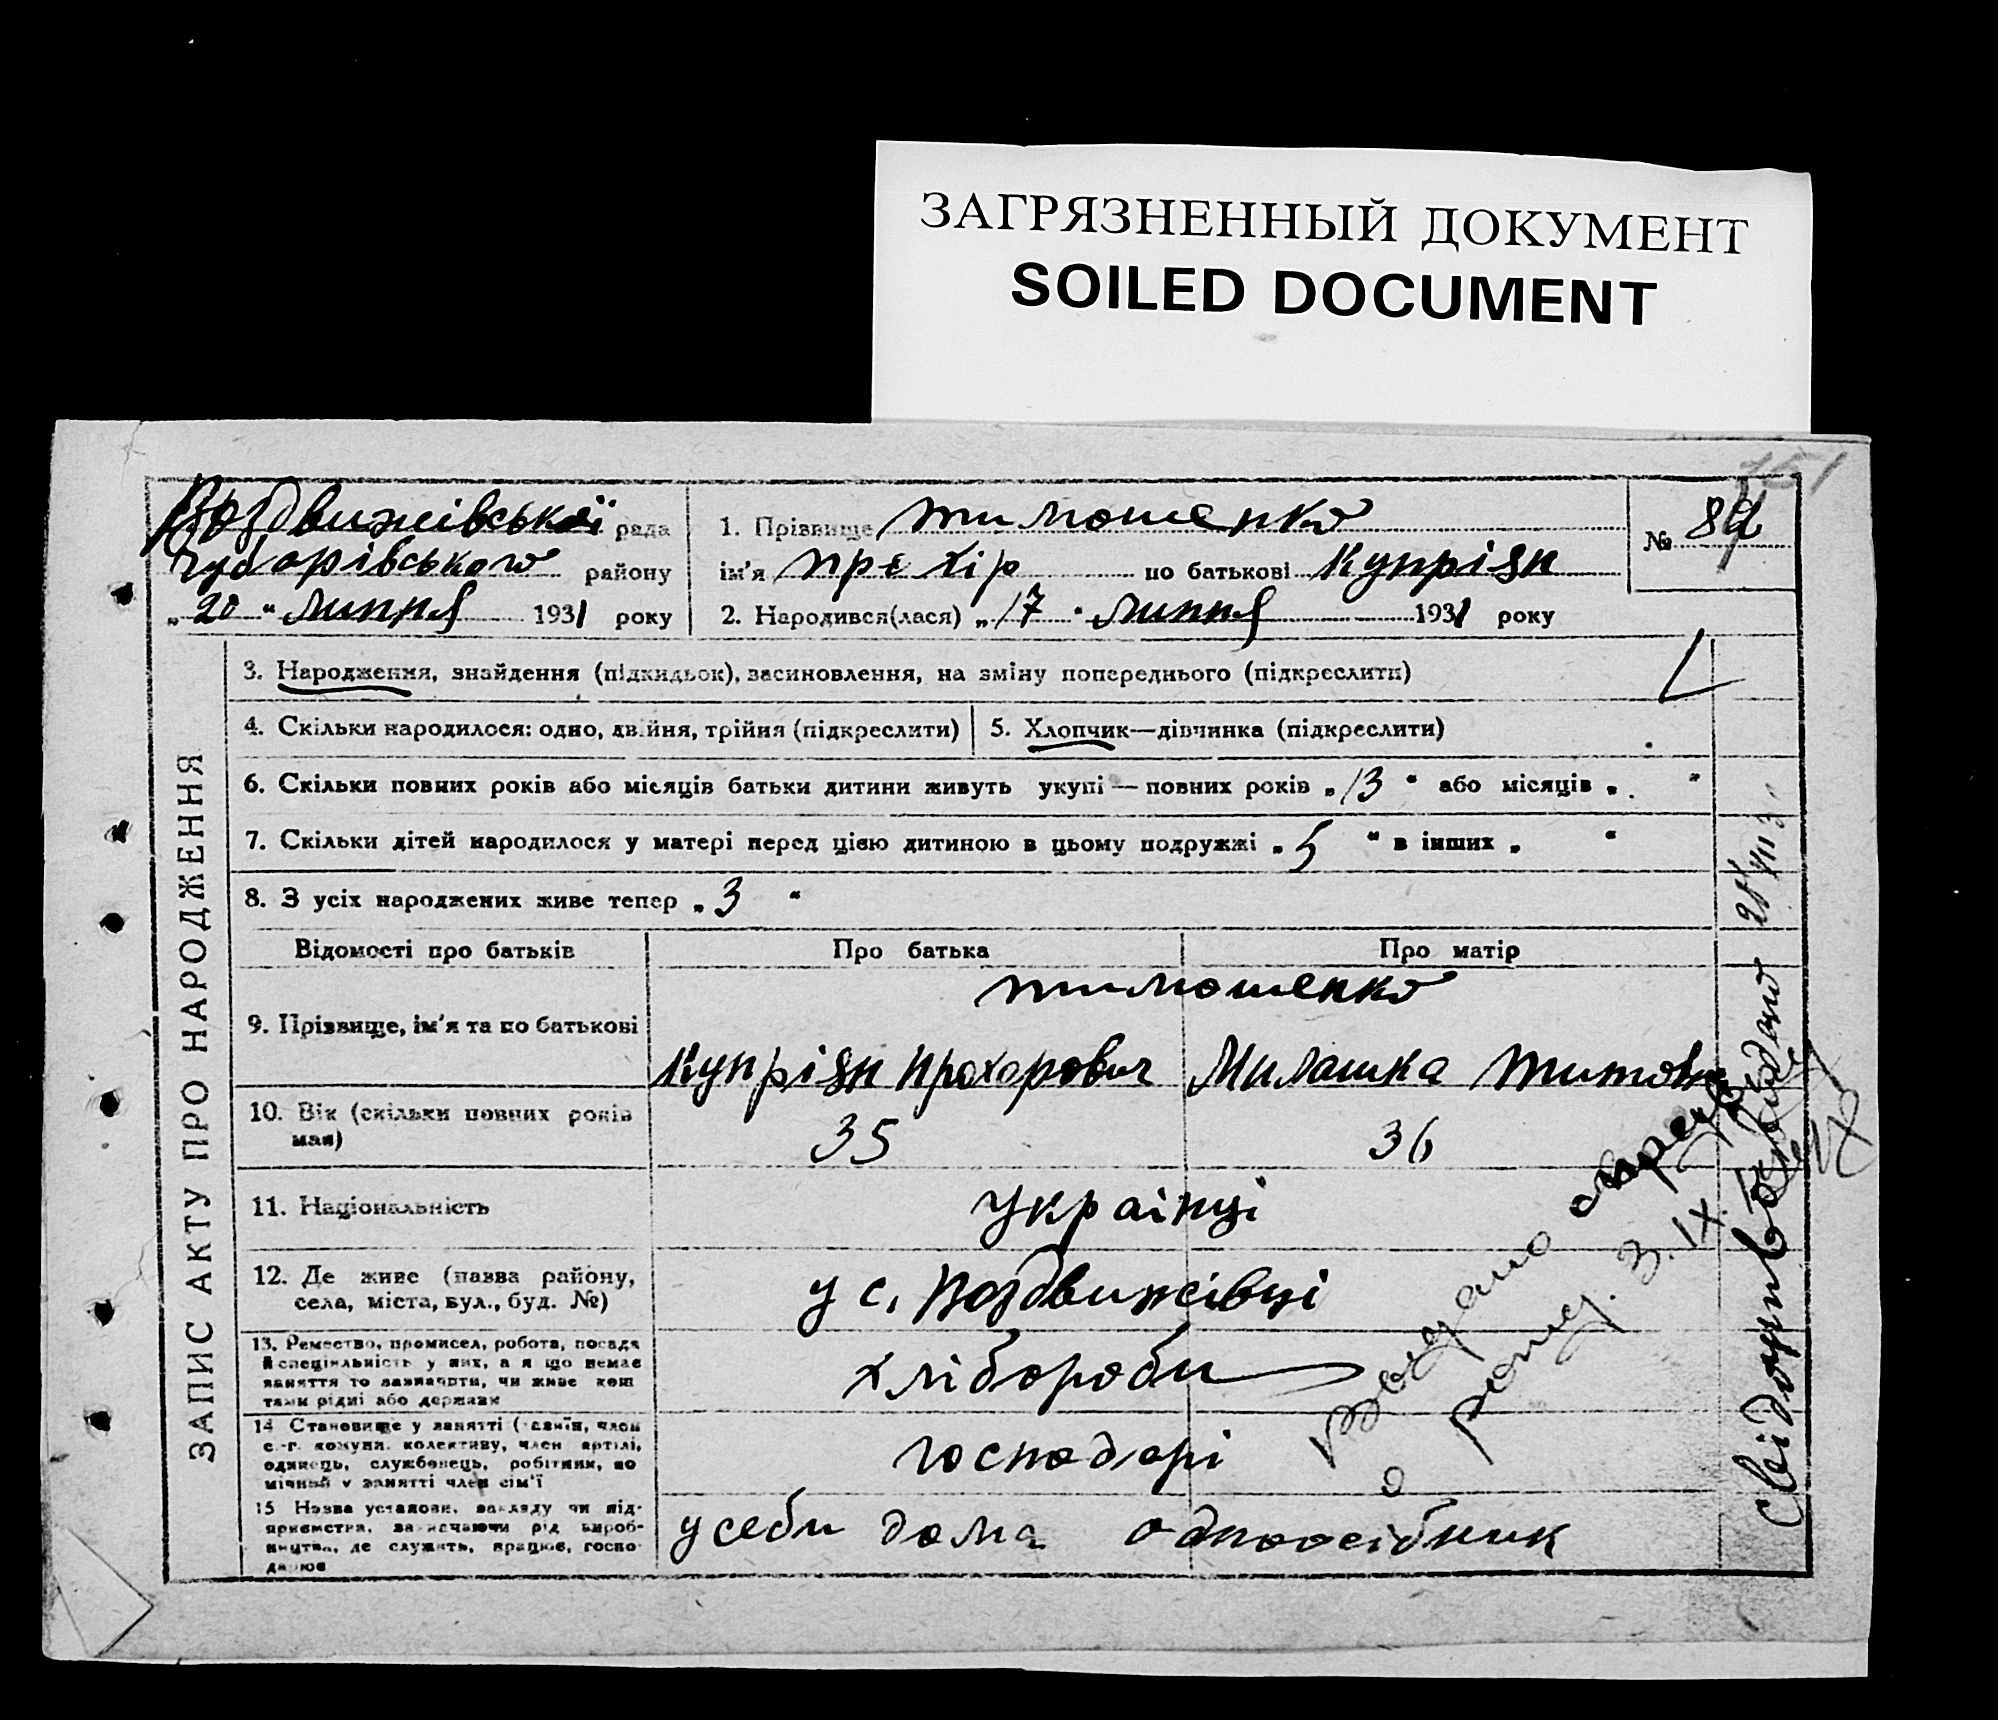 ЗАГРЯЗНЕННЫЙ ДОКУМЕНТ
SOILED DOCUMENT
151
Воздвижівської рада
Чубарівського району
„20“ липня 1931 року
1. Прізвище Тимошенко
ім'я Прохір по батькові Купріян
2. Народився(лася) „17“ липня 1931 року
№ 84
ЗАПИС АКТУ ПРО НАРОДЖЕННЯ
3. Народження, знайдення (підкидьок), засиновлення, на зміну попереднього (підкреслити)
4. Скільки народилося: одно, двійня, трійня (підкреслити)
5. Хлопчик—дівчинка (підкреслити)
6. Скільки повних років або місяців батьки дитини живуть укупі — повних років „13“ або місяців „ “
7. Скільки дітей народилося у матері перед цією дитиною в цьому подружжі „5“ в інших „ “
8. З усіх народжених живе тепер „3“
Відомості про батьків
Про батька
Про матір
9. Прізвище, ім'я та по батькові
Тимошенко
Купріян Прохорович
Милашка Титовн
10. Вік (скільки повних років
мав)
35
36
11. Національність
Українці
12. Де живе (назва району,
села, міста, вул., буд. №)
у с. Воздвижівці
13. Ремество, промисел, робота, посада
й спеціяльність у них, а я що немає
заняття то зазначити, чи живе кош
тами рідні або держави
хлібороби
14 Становище у занятті (хазяїн, член
с.-г. комуни, колективу, член артілі,
одинець, службовець, робітник, по
мічний у занятті член сім'ї
господарі
15 Назва установи, закладу чи під-
приємства, зазначаючи рід вироб-
ництва, де служить, працює, госпо-
дарює
у себи дома одноосібник
Видано
3.IX.
Свідоцтво видано